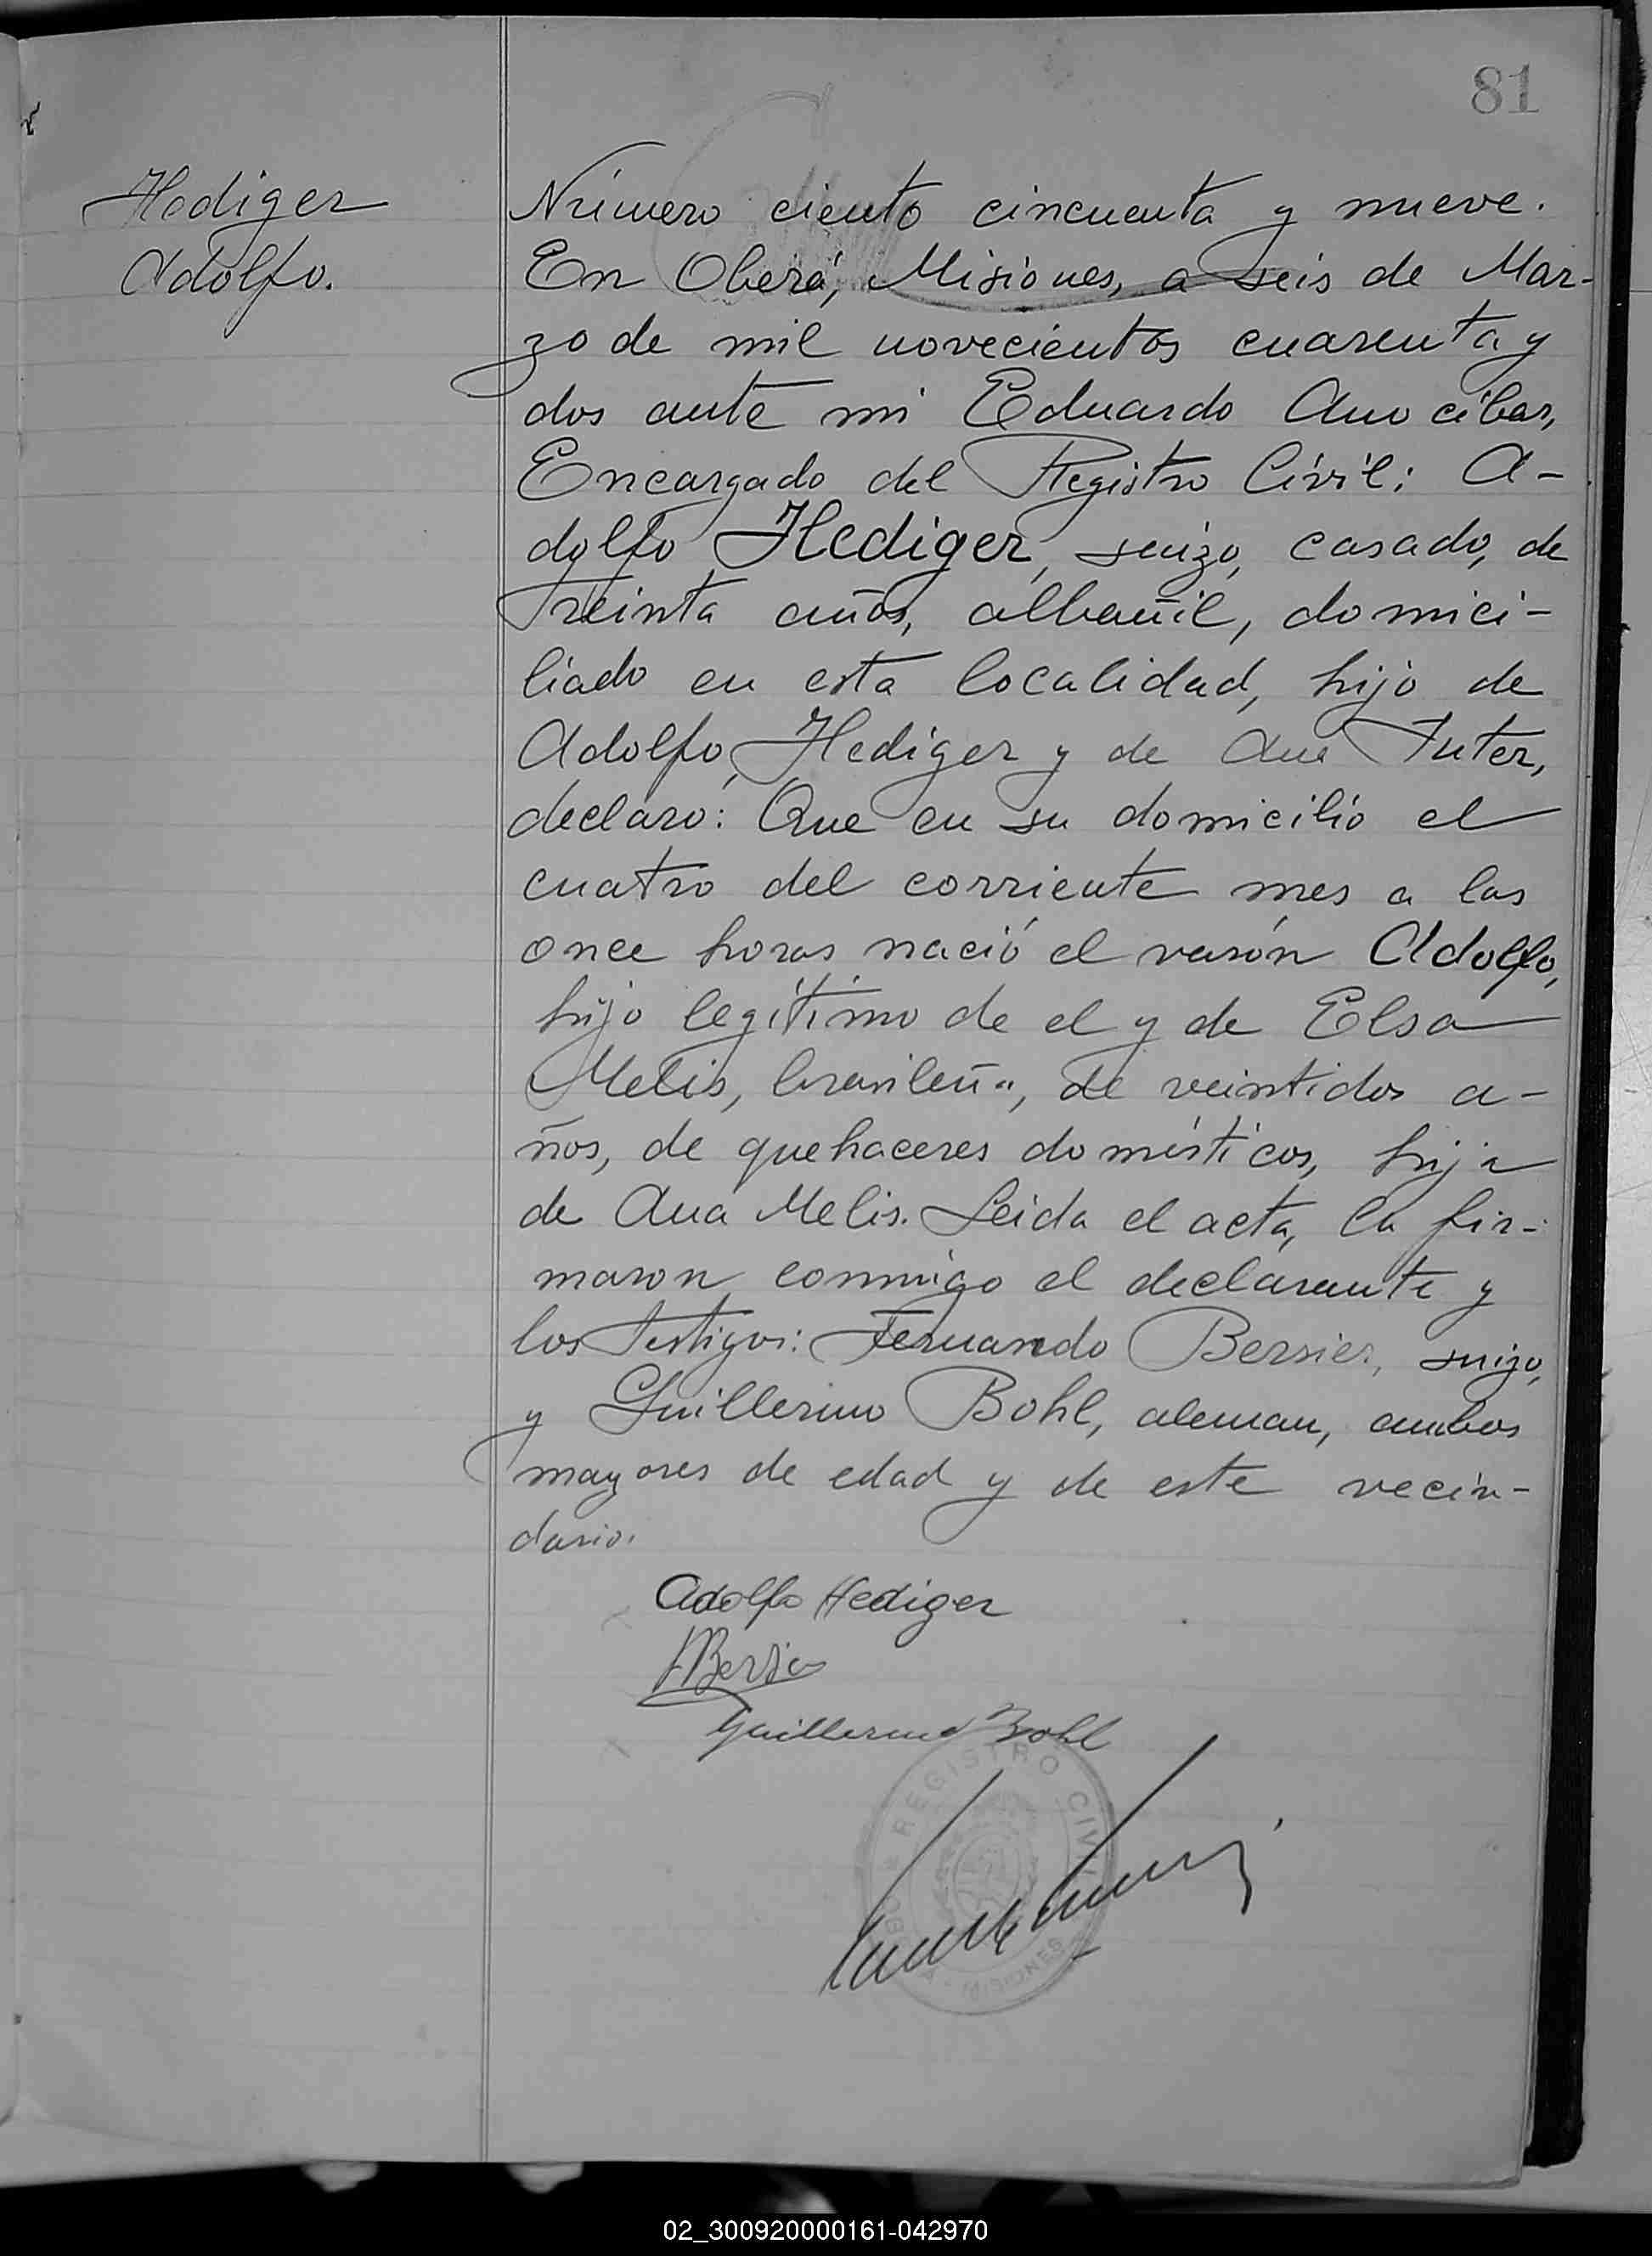 81
Hediger
Adolfo.
Número ciento cincuenta y nueve.
En Oberá, Misiones, a seis de Mar-
zo de mil novecientos cuarenta y
dos ante mi Eduardo Anocibar,
Encargado del Registro Civil; A-
dolfo Hediger, suizo, casado, de
treinta años, albañil, domici-
liado en esta localidad, hijo de
Adolfo Hediger y de Ana Suter,
declaro: Que en su domicilio el
cuatro del corriente mes a las
once horas nació el varón Adolfo,
hijo legítimo de el y de Elsa
Melis, brasileña, de veintidos a-
ños, de quehaceres domésticos, hija
de Ana Melis. Leida el acta, la fir-
maron conmigo el declarante y
los testigos: Fernando Bersier, suizo,
y Guillermo Bohl, aleman, ambos
mayores de edad y de este vecin-
dario.
Adolfo Hediger
FBersier
Guillermo Bohl
REGISTRO CIVIL
MISIONES
02_300920000161-042970